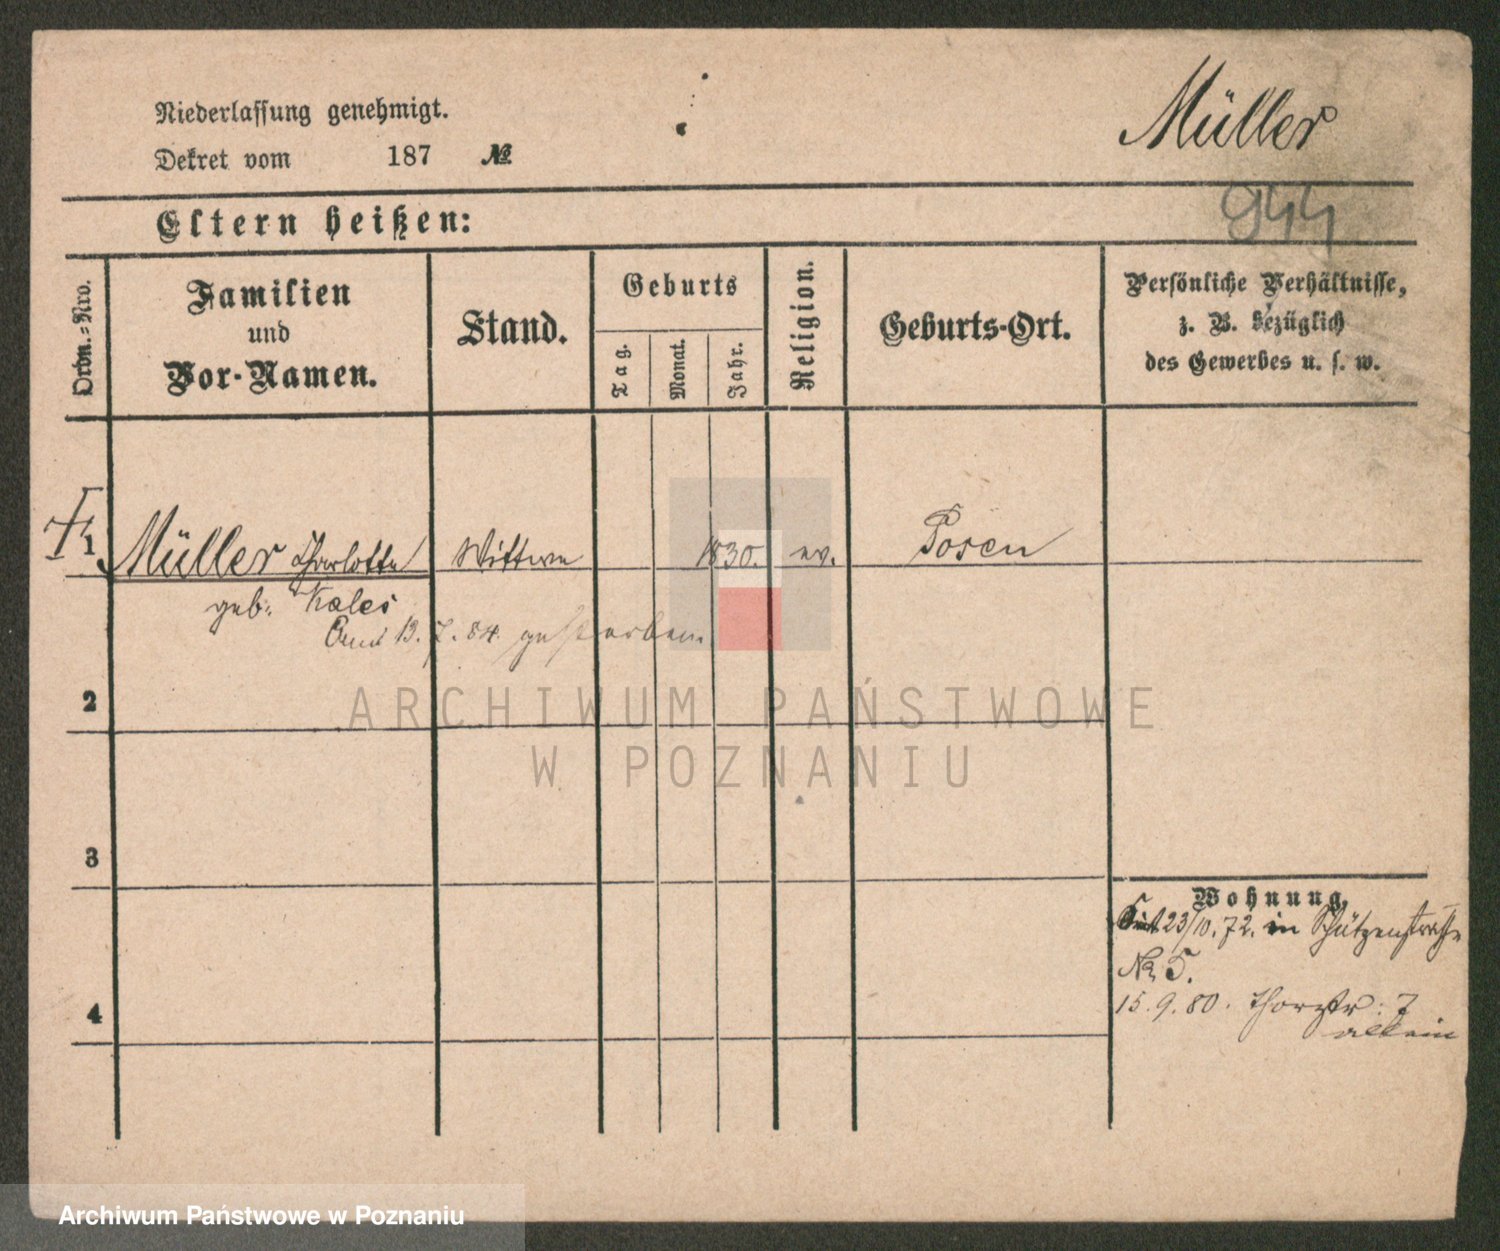 Müller
Niederlassung genehmigt.
Dekret vom 187 №
944
Eltern heißen:
Ordn.-Nro.
Familien
und
Vor-Namen.
Stand.
Geburts
Tag.
Monat.
Jahr.
Religion.
Geburts-Ort.
Persönliche Verhältnisse,
z. B. bezüglich
des Gewerbes u. s. w.
1 Müller Charlotte Wittwe 1830. ev. Posen
geb:
13. 7. 84. gestorben
2
3
4
Wohnung.
Seit 23/10. 72. in Schützenstraße
№ 5.
15. 9. 80. Thorstr: 7
allein
ARCHIWUM PAŃSTWOWE
W POZNANIU
Archiwum Państwowe w Poznaniu